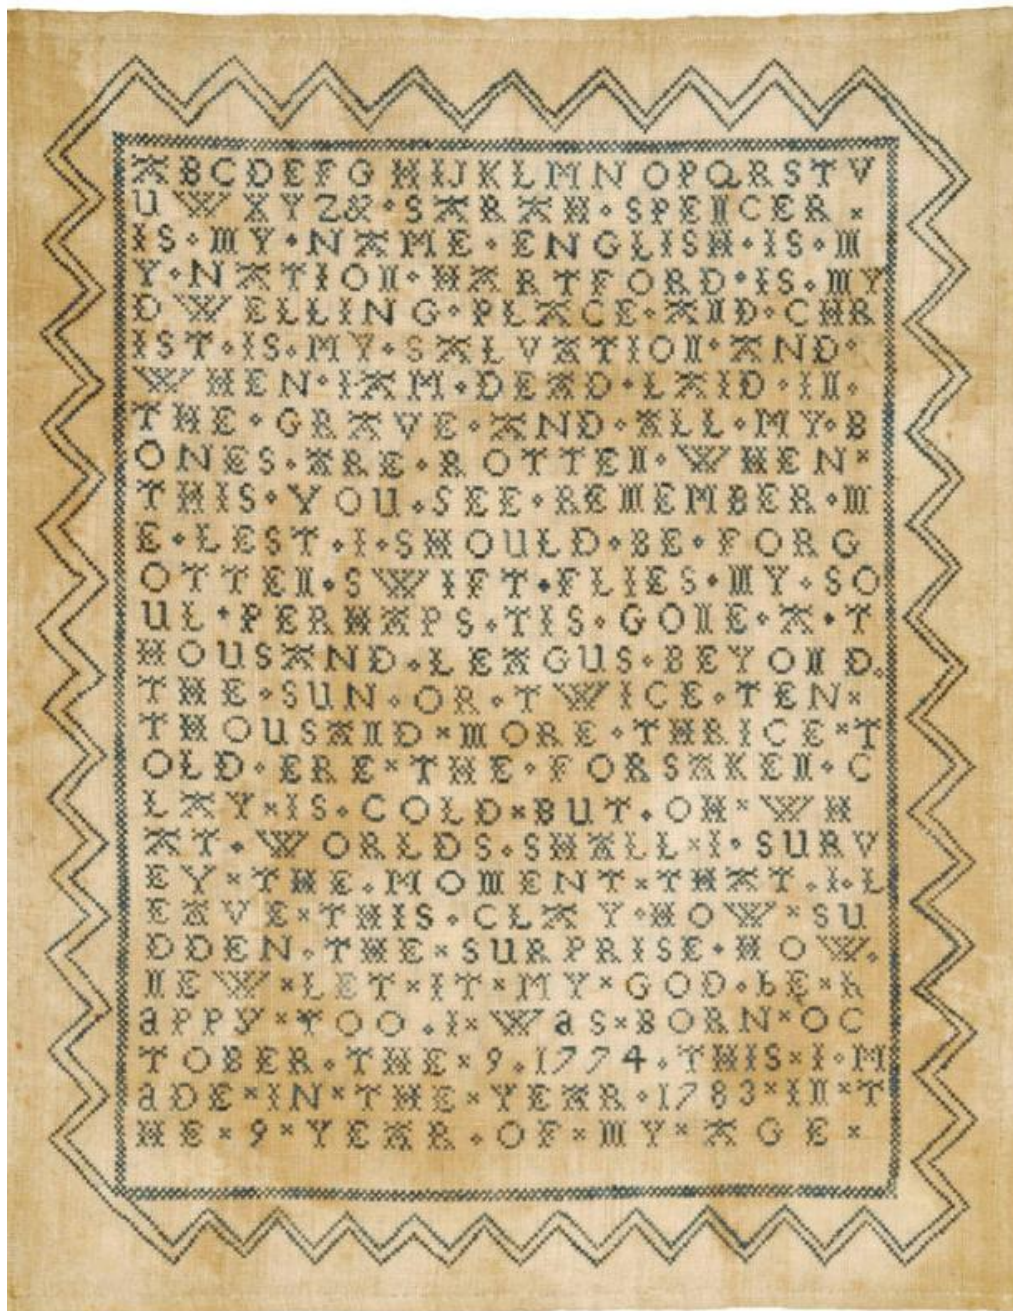 ABCDEFGHIJKLMNOPQRSTV
UWXYZ&·SARAH·SPENCER×
IS·MY·NAME·ENGLISH·IS·M
Y·NATION·HARTFORD·IS·MY
DWELLING·PLACE·AND·CHR
IST·IS·MY·SALVATION·AND·
WHEN·I·AM·DEAD·LAID·IN·
THE·GRAVE·AND·ALL·MY·B
ONES·ARE·ROTTEN·WHEN×
THIS·YOU·SEE·REMEMBER·M
E·LEST·I·SHOULD·BE·FORG
OTTEN·SWIFT·FLIES·MY·SO
UL·PERHAPS·TIS·GONE·A·T
HOUSAND·LEAGUS·BEYOND·
THE·SUN·OR·TWICE·TEN×
THOUSAND×MORE·THRICE×T
OLD·ERE×THE·FORSAKEN·C
LAY×IS·COLD×BUT·OH×WH
AT·WORLDS·SHALL×I·SURV
EY×THE·MOMENT×THAT·I·L
EAVE×THIS·CLAY·HOW×SU
DDEN·THE×SURPRISE·HOW·
NEW×LET×IT×MY×GOD·bE×h
aPPY×TOO·I×WaS×BORN×OC
TOBER·THE×9·1774·THIS×I·M
aDE×IN×THE×YEAR·1783×IN×T
HE×9×YEAR·OF×MY×AGE×